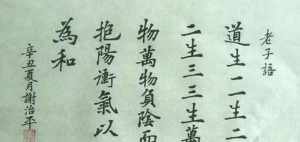 老子語
道生一一生二
二生三三生萬
物萬物負陰而
抱陽衝氣以
為和
辛丑夏月謝治平